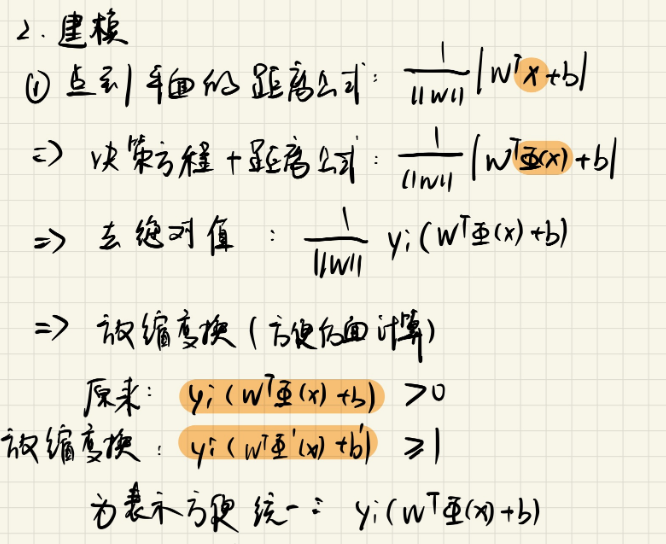 2. 建模
① 点到平面的距离公式: 1/||W|| |W^T x+b|
=> 决策方程+距离公式: 1/||W|| |W^T Φ(x)+b|
=> 去绝对值 : 1/||W|| y_i(W^T Φ(x)+b)
=> 放缩变换 (方便后面计算)
原来: y_i(W^T Φ(x)+b) >0
放缩变换: y_i(W^T Φ'(x)+b') ≥1
为表示方便 统一: y_i(W^T Φ(x)+b)